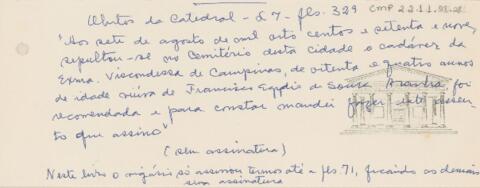 Óbitos da Catedral - L 7 - fls. 329
CMP 2.2.11.
"Aos sete de agosto de mil oito centos e setenta e nove,
sepultou-se no Cemitério desta cidade o cadáver da
Exma. Viscondessa de Campinas, de oitenta e quatro annos
de idade viúva de Francisco Egydio de Souza Aranha foi
recomendada e para constar mandei fazer este presen-
to que assino"
(sem assinatura)
Neste livro o vigário só assinou termos até a fls 71, ficando os demais
sem assinatura